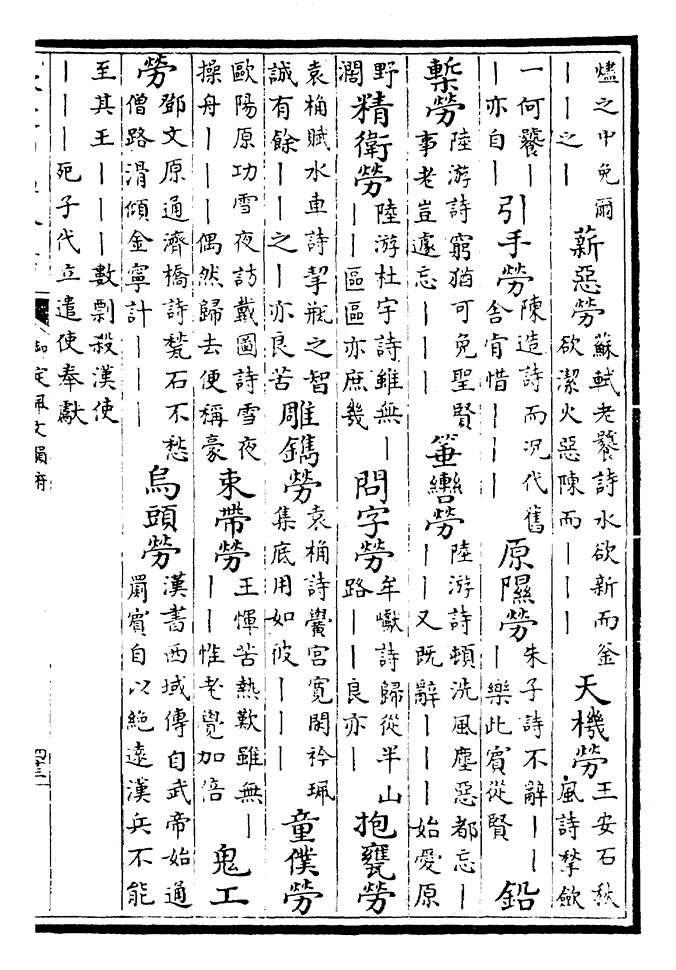 燼之中免爾
｜｜之｜
薪惡勞
蘇軾老饕詩水欲新而釜
欲潔火惡陳而｜｜｜
天機勞
王安石秋
風詩摯斂
一何饕｜
｜亦自｜
引手勞
陳造詩而况代舊
舍肯惜｜｜｜
原隰勞
朱子詩不辭｜｜
｜樂此賓從賢
鉛
槧勞
陸游詩窮猶可免聖賢
事老豈遽忘｜｜｜
箠轡勞
陸游詩頓洗風塵惡都忘｜
｜｜又既辭｜｜｜始愛原
野
濶
精衛勞
陸游杜宇詩雖無｜
｜｜區區亦庶幾
問字勞
牟巘詩歸從半山
路｜｜良亦｜
抱甕勞
袁桷賦水車詩挈瓶之智
誠有餘｜｜之｜亦良苦
雕鐫勞
袁桷詩黌宮寬閑衿珮
集底用如彼｜｜｜
童僕勞
歐陽原功雪夜訪戴圖詩雪夜
操舟｜｜｜偶然歸去便稱豪
束帶勞
王惲苦熱歎雖無｜
｜｜惟老覺加倍
鬼工
勞
鄧文原通濟橋詩甃石不愁
僧路滑傾金寧計｜｜｜
烏頭勞
漢書西域傳自武帝始通
罽賓自以絶遠漢兵不能
至其王｜｜｜數剽殺漢使
｜｜｜死子代立遣使奉獻
御定佩文韻府